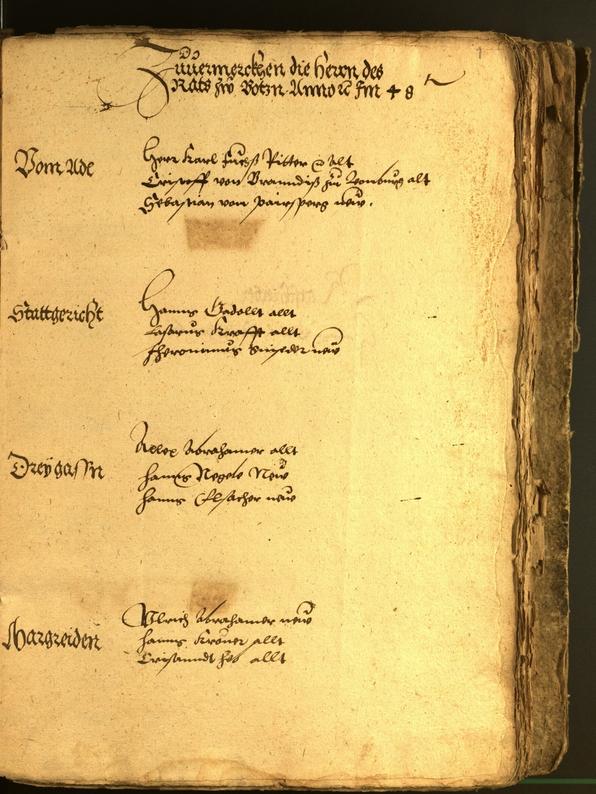 1
Zuuermerckhen die herrn des
Rats zw Botzn Anno &c Im 48
Vom Ade
Herr Karl Fuchß Ritter &c alt
Cristoff von Branndiß zu Leonburg alt
Sebastian von pairsperg new.
Stattgericht
Hanns Gadollt allt
Lasarus Krafft allt
Jheronimus new
Dreÿgassn
Abrahamer allt
hanns Negele New
hanns Elsacher new
Margreiden
Vlrich Abrahamer new
hanns Kroner allt
Cristanndt allt